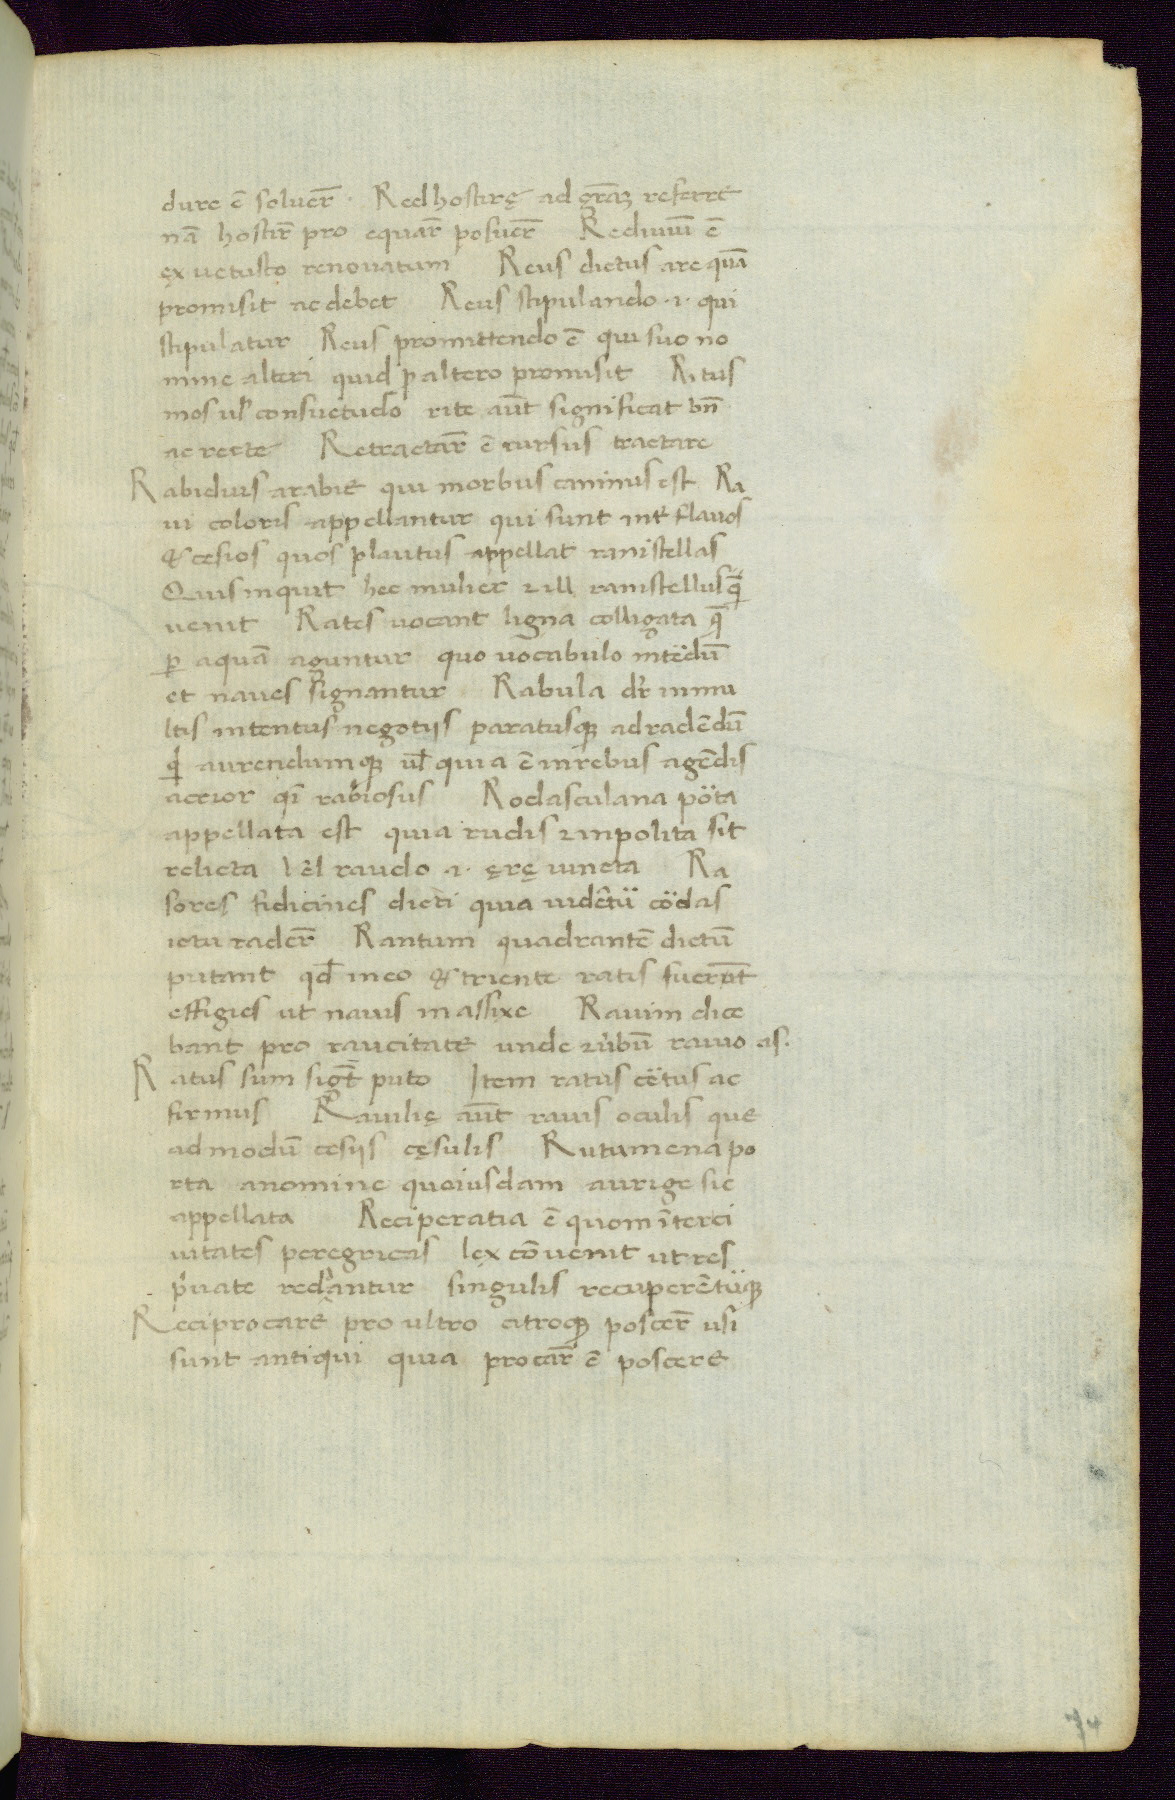 dure ē soluer̄ · Redhostirę ad gr̄aꝫ referre
nā hostir̄ pro equar̄ posuer̄ Rediuiuū ē
ęx uetusto renouatum Reus dictus are quā
promisit ac debet Reus stipulando ·i· qui
stipulatur Reus promittendo ē qui suo no
mine alteri quid ꝓ altero promisit Ritus
mos ul̄ consuetudo rite aūt significat bn̄
ac recte Retractar̄ ē rursus tractare
Rabidius arabie qui morbus caninus est Ra
ui coloris appellantur qui sunt int̄ flauos
& cesios quos plautus appellat ranistellas
Quis inquit hec mulier ⁊ ill ranistellus q̄
uenit Rates uocant ligna colligata q̄
ꝑ aquā aguntur quo uocabulo intēdū
et naues signantur Rabula dr̄ in mu
ltis intentus negotijs paratusqꝫ ad radēdū
qd aurendumqꝫ ul̄ quia ē in rebus agēdis
acrior q̄i rabiosus Rodasculana pōta
appellata est quia rudis ⁊ inpolita sit
relicta l̓ el̄ raudo ·i· ęrę iuncta Ra
sores fidicines dicti quia uidētū cōdas
ictu rader̄ Rantum quadrantē dictū
putant qd̄ in eo & triente ratis fuerūt
effigies ut nauis in assixe Rauim dice
bant pro raucitate unde ⁊ u̓bū rauio as.
Ratus sum sigt̄ puto Item ratus cētus ac
firmus Rauilię aūt rauis oculis que
ad modū cesijs cęsulis Rutumena po
rta a nomine quoiusdam aurige sic
appellata Reciperatia ē quom īter ci
uitates peregricas lex cōuenit ut res
p̓uate reddantur singulis recuperētūqꝫ
Reciprocare pro ultro citroqꝫ poscer̄ usi
sunt antiqui quia procar̄ ē poscere
74